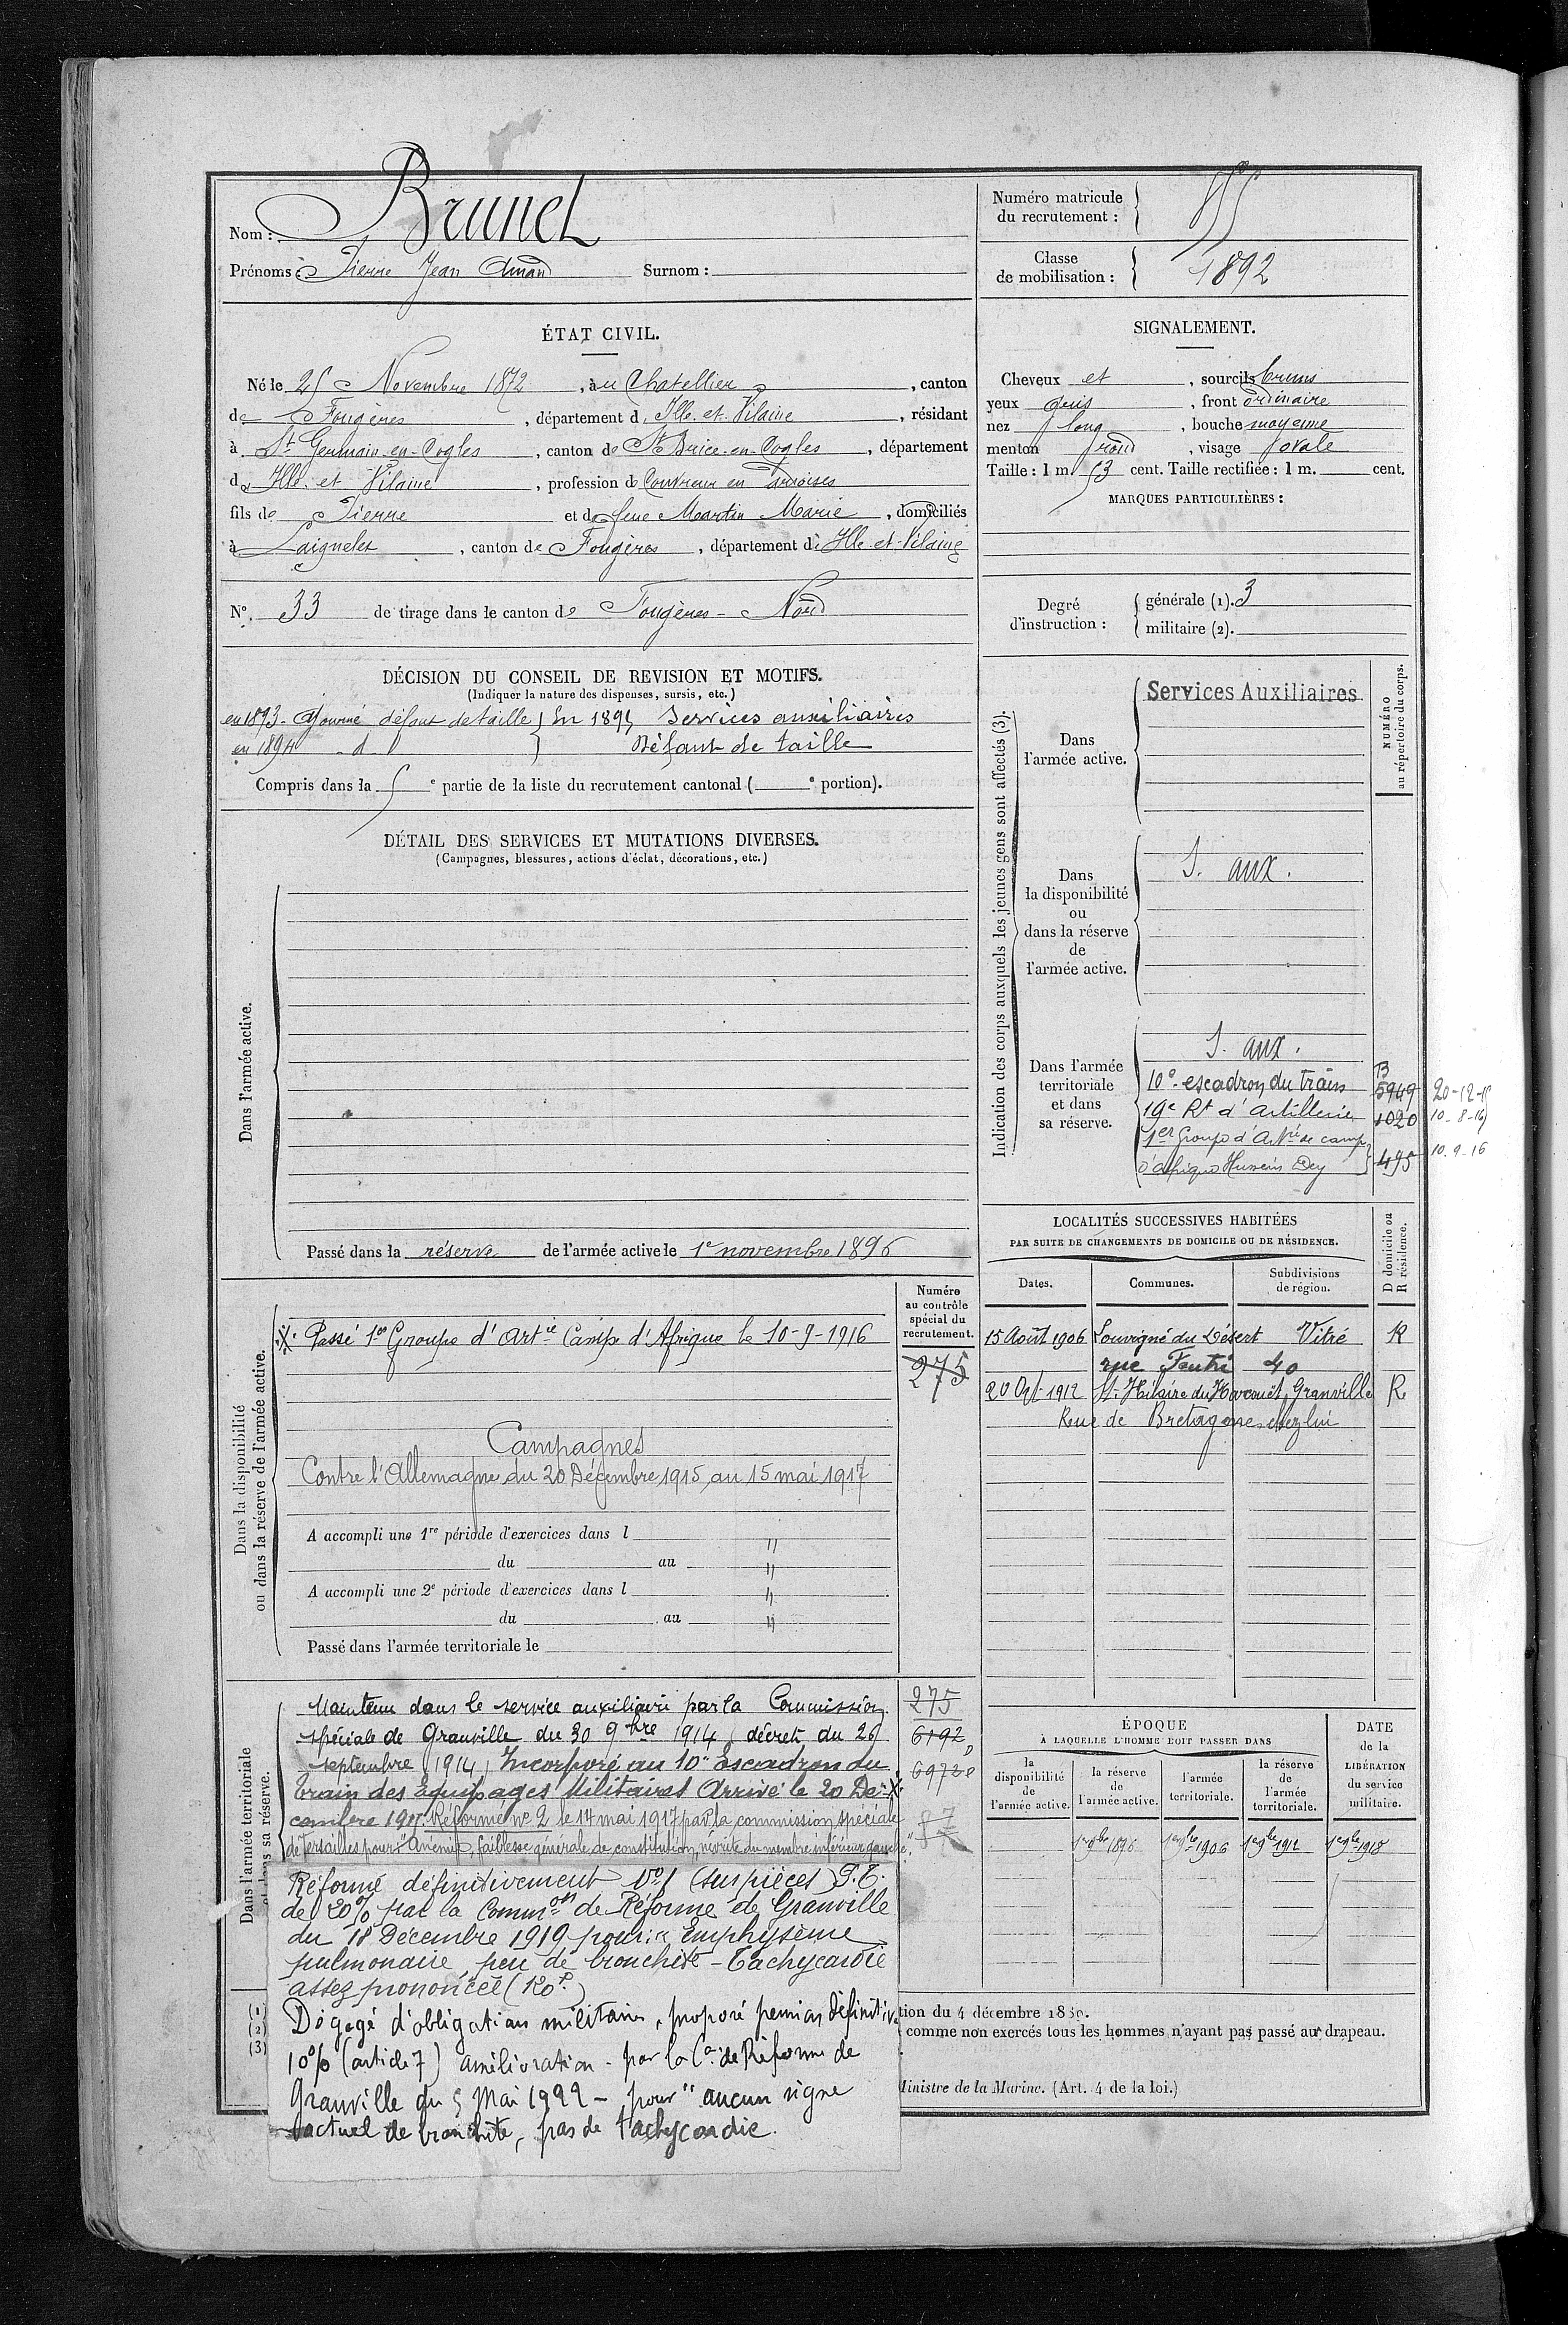 Nom : Brunel
Prénoms : Pierre Jean Amand Surnom :
Numéro matricule
du recrutement :
Classe
de mobilisation : 1892
ÉTAT CIVIL.
Né le 25 Novembre 1872, à u Chatellier, canton
de Fougères, département d'Ille-et-Vilaine, résidant
à St Germain-en-Cogles, canton de St Brice-en-Cogles, département
d'Ille-et-Vilaine, profession de Couvreur en ardoises
fils de Pierre et de feue Martin Marie, domiciliés
à Laignelet, canton de Fougères, département d'Ille-et-Vilaine
N° 33 de tirage dans le canton de Fougères-Nord
SIGNALEMENT.
Cheveux et, sourcils bruns
yeux gris, front ordinaire
nez long, bouche moyenne
menton rond, visage ovale
Taille : 1 m. 53 cent. Taille rectifiée : 1 m. cent.
MARQUES PARTICULIÈRES :
Degré
d'instruction :
générale (1). 3
militaire (2).
DÉCISION DU CONSEIL DE REVISION ET MOTIFS.
(Indiquer la nature des dispenses, sursis, etc.)
en 1893 - Ajourné défaut de taille } En 1895 Services auxiliaires
en 1894 - d° } Défaut de taille
Compris dans la 5 e partie de la liste du recrutement cantonal ( e portion).
DÉTAIL DES SERVICES ET MUTATIONS DIVERSES.
(Campagnes, blessures, actions d'éclat, décorations, etc.)
Dans l'armée active.
Passé dans la réserve de l'armée active le 1er novembre 1896
Indication des corps auxquels les jeunes gens sont affectés (3).
NUMÉRO
au répertoire du corps.
Dans
l'armée active.
Services Auxiliaires
Dans
la disponibilité
ou
dans la réserve
de
l'armée active.
S. aux.
Dans l'armée
territoriale
et dans
sa réserve.
S. aux.
10e escadron du train B 5949 20-12-15
19e Rt d'Artillerie 1020 10-8-16
1er Groupe d'Artie de camp
d'afrique Hussein Dey 495 10-9-16
LOCALITÉS SUCCESSIVES HABITÉES
PAR SUITE DE CHANGEMENTS DE DOMICILE OU DE RÉSIDENCE.
D domicile ou
R résidence.
Dates. Communes. Subdivisions
de région.
15 Août 1906 Louvigné du Désert Vitré R
rue 40
20 Oct 1912 St-Hilaire du Harcouët Granville R
Rue de Bretagne chez lui
Dans la disponibilité
ou dans la réserve de l'armée active.
Numéro
au contrôle
spécial du
recrutement.
275
X Passé 1er Groupe d'Artie Camp d'Afrique le 10-9-1916
Campagnes
Contre l'Allemagne du 20 Décembre 1915 au 15 mai 1917
A accompli une 1re période d'exercices dans l "
du au "
A accompli une 2e période d'exercices dans l "
du au "
Passé dans l'armée territoriale le
Dans l'armée territoriale
et dans sa réserve.
Maintenu dans le service auxiliaire par la Commission 275
spéciale de Granville du 30 9bre 1914, décret du 26 6192
septembre 1914, Incorporé au 10e Escadron du 6972
train des Equipages Militaires Arrivé le 20 Dé- X
cembre 1915. Réformé n° 2 le 14 mai 1917 par la commission spéciale
de Versailles pour "Anémie, faiblesse générale de constitution, névrite du membre inférieur gauche".
Réformé définitivement N° 1 (sur pièces) P.T.
de 20% par la Common de Réforme de Granville
du 18 Décembre 1919 pour : "Emphysème
pulmonaire, peu de bronchite - Tachycardie
assez prononcée (120 P.)
Dégagé d'obligations militaires, proposé pension définitive
10% (article 7) amélioration - par la Con de Réforme de
Granville du 5 Mai 1922 - pour "aucun signe
actuel de bronchite, pas de tachycardie.
ÉPOQUE
À LAQUELLE L'HOMME DOIT PASSER DANS
la
disponibilité
de
l'armée active.
la réserve
de
l'armée active.
l'armée
territoriale.
la réserve
de
l'armée
territoriale.
DATE
de la
LIBÉRATION
du service
militaire.
1er 9bre 1896 1er 9bre 1906 1er 9bre 1912 1er 9bre 1918
(1)
(2)
(3)
tion du 4 décembre 1889.
comme non exercés tous les hommes n'ayant pas passé au drapeau.
Ministre de la Marine. (Art. 4 de la loi.)